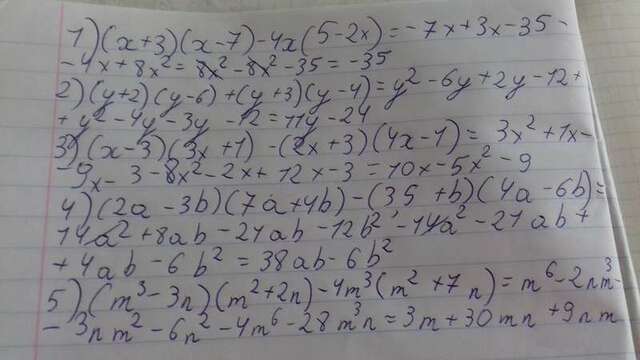 1) (x+3)(x-7)-4x(5-2x)=-7x+3x-35-
-4x+8x²=8x²-8x²-35=-35
2) (y+2)(y-6)+(y+3)(y-4)=y²-6y+2y-12+
+y²-4y-3y-12=11y-24
3) (x-3)(3x+1)-(2x+3)(4x-1)=3x²+1x-
-9x-3-8x²-2x+12x-3=10x-5x²-9
4) (2a-3b)(7a+4b)-(35+b)(4a-6b)=
14a²+8ab-21ab-12b²-14a²-21ab+
+4ab-6b²=38ab-6b²
5) (m³-3n)(m²+2n)-4m³(m²+7n)=m⁶-2nm³-
-3nm²-6n²-4m⁶-28m³n=3m+30mn+9nm